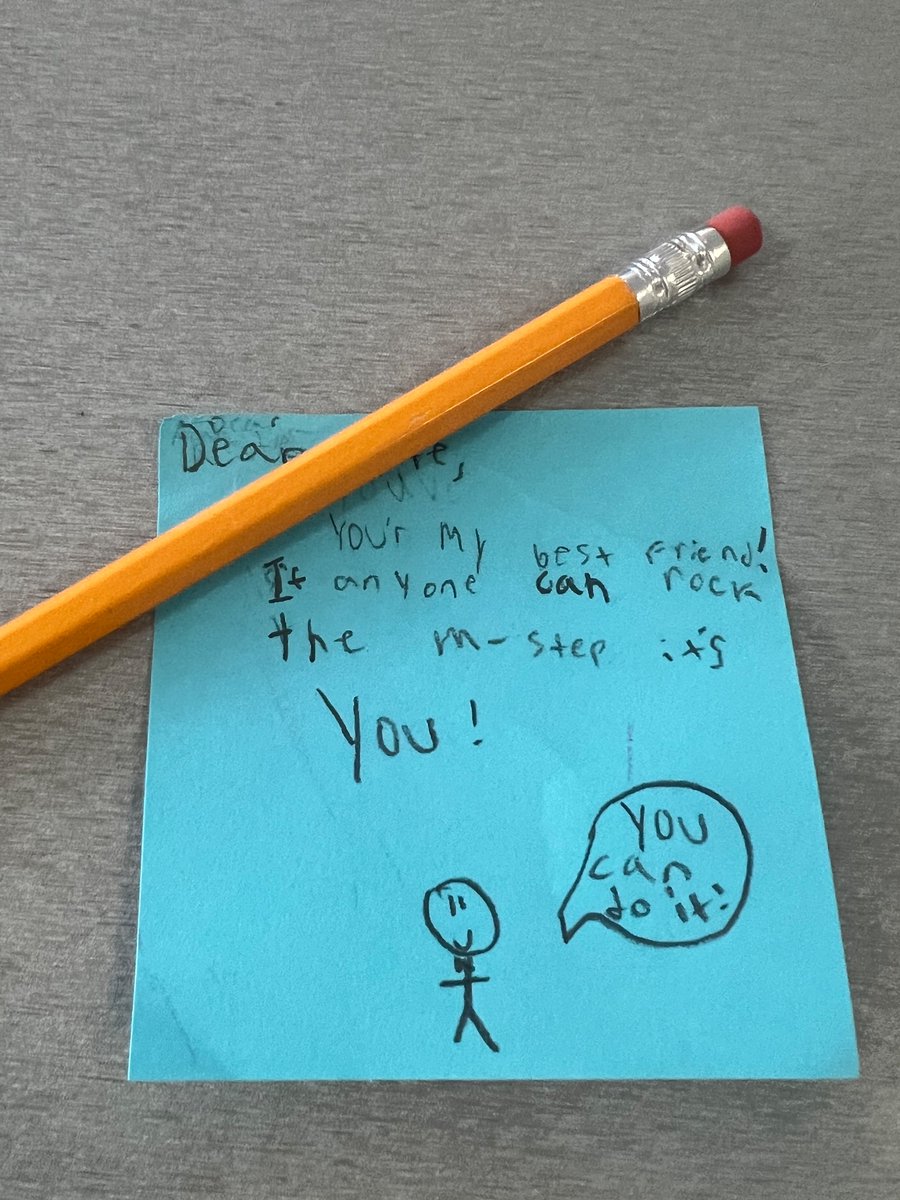 Dear
You'r my best friend!
If anyone can rock
the m-step it's
You!
You
can
do it!